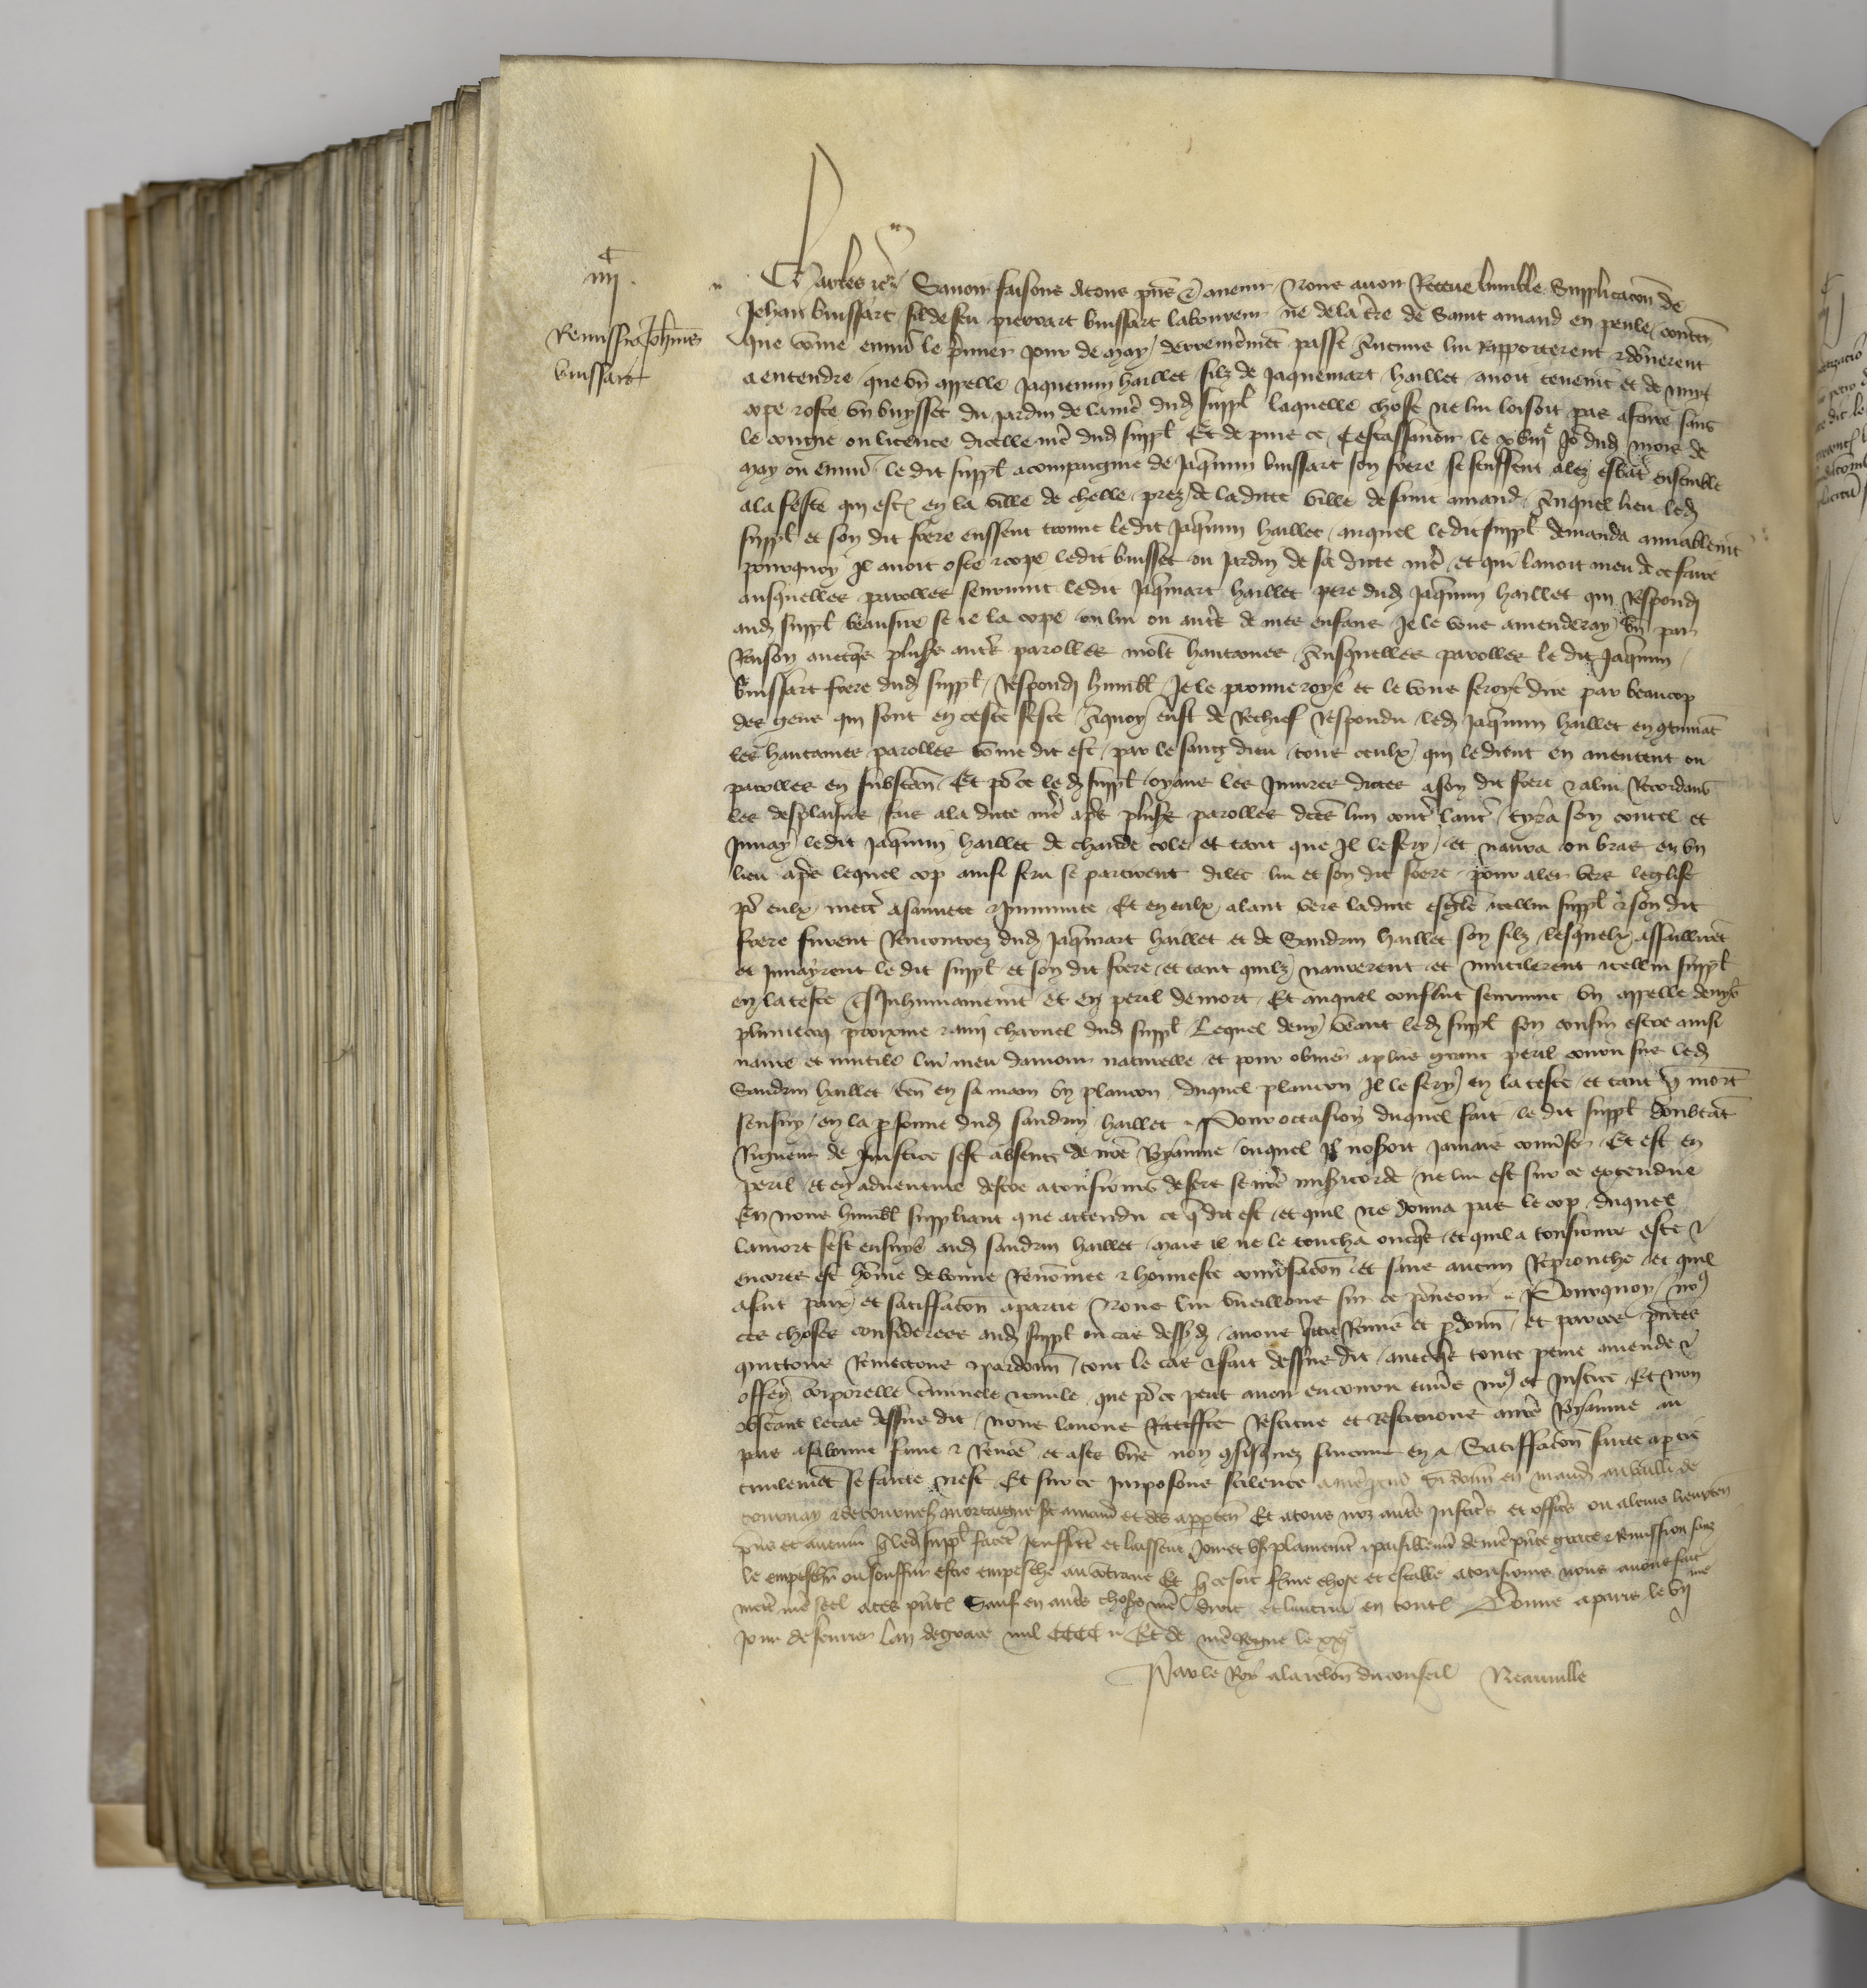 iiij
Remissio Johannis
buissart
Charles etc. Savoir faisons a tous pñs et avenir Nous avoir Receue humble Supplicacõn de
Jehan buissart filz de feu pierart buissart laboureur né de la tr̃e de Saint amand en peule conteñ
que cõme environ le p̃mier jour de may derrenierem̃t passé Aucuns lui Rapporterent & dõnerent
a entendre que vn appellé Jaquemin haillet filz de Jaquemart haillet avoit et de nuyt
copé & osté vn buysset du jardin de la mer̃ dud suppl̃ laquelle chose ne lui loisoit pas a faire sans
le congié ou licence dicelle mer̃ dud suppl̃ Et depuis ce Cestassavoir le xviije Jor̃ dud mois de
may ou environ le dit suppl̃ acompaignié de Jaq̃min buissart son frere se feussent alez esbatr̃ ensemble
a la feste qui est en la ville de chelle prez de la dicte ville de saint amand Auquel lieu led
suppl̃ et son dit frere eussent trouvé ledit Jaq̃min haillet auquel ledit suppl̃ demanda amiablem̃t
pourquoy Il avoit osté & copé ledit buisset ou jardin de sa dicte mer̃ et qui lavoit meu de ce faire
ausquelles parolles seurvint ledit Jaq̃mart haillet pere dud Jaq̃min haillet qui Respondi
aud suppl̃ beausire se je lay copé ou lui ou autr̃ de mes enfans Je le vous amenderay par
Raison avecq̃s plus̃rs autr̃s parolles molt hautaines Ausquelles parolles le dit Jaq̃min
buissart frere dud suppl̃ Respondi humbl̃ Je le prouveroye et le vous feroye dire par beaucop
des gens qui sont en ceste feste Aquoy eust de Rechief Respondu led Jaq̃min haillet en 9tinuãt
les hautaines parolles cõme dit est par le sang dieu tous ceulx qui le dient en mentent ou
parolles en substanc̃ Et por̃ ce le d suppl̃ oyans les Injures dictes a son dit frere & a lui Recordans
les desplaisirs fais a la dicte mer̃ apr̃s plus̃rs parolles dictes lun contr̃ lautr̃ tyra son coutel et
Invay ledit Jaq̃min haillet de chaude cole et tant que Il le fery et navra ou bras en vn
lieu apr̃s lequel cop ainsi feru se partirent dilec lui et son dit frere pour aler vers leglise
por̃ eulx mettr̃ a sauveté & Immunité Et en eulx alant vers ladicte eglise icellui suppl̃ & son dit
frere furent Rencontrez dud Jaq̃mart haillet et de Sandrin haillet son filz lesquelx assaillirẽt
et Invayrent le dit suppl̃ et son dit frere et tant quilz navrerent et mutilerent icellui suppl̃
en la teste Inhumainem̃t et en peril de mort Et auquel conflict seurvint vn appellé denys
proixme & ami charnel dud suppl̃ Lequel denys veant led suppl̃ son cousin estre ainsi
navré et mutilé lui meu damour naturelle et pour obvier a plus grant peril couru sus led
Sandrin haillet teñ en sa main vn plançon duquel plançon Il le fery en la teste et tant q̃ mort
sensuy en la p̃sonne dud sandrin haillet Pour occasion duquel fait le dit suppl̃ doubtãt
Rigueur de Justice sest absenté de nr̃e Royaume ouquel Il nosoit jamais conv̾ser Et est en
peril et en adventure destre a tousiours desert se nr̃e mis̃icorde ne lui est sur ce extendue
En nous humbl̃ suppliant que attendu ce q̃ dit est et quil ne donna pas le cop duquel
la mort sest ensuye aud sandrin haillet mais il ne le toucha oncq̃s et quil a tousiours esté &
encores est hõme de bonne Renõmee & honneste conv̾sacõn et sans aucun Reprouche et quil
a fait paix et satisfacõn a partie Nous lui vueillons sur ce p̃veoir Pourquoy no9
ces choses considerees aud suppl̃ ou cas dess9 d avons quitté Remis et p̃donñ et par ces p̃ntes
quittons Remettons & pardonñ tout le cas & fait dessus dit avecq̃s toute peine amende &
offeñ corporelle criminele & civile que por̃ ce peut avoir encouru env̾s no9 et Justice Et non
obstant le cas dessus dit nous lavons Restitué et Restituons a nr̃e Royaume au
pais a sa bonne fame & Renõmee et a ses biens non 9fisquez Satisfacõn faicte a p̃tie
civilem̃t se faicte nest Et sur ce Imposons scilence a nr̃e procur̃ Si donñ en mandem̃t au bailli de
tournay & de tournes̃ mortaigne st amand et des apparten̄ Et a tous noz autr̃s Justic̃rs et offic̃rs ou a leurs lieuxteñ
p̃ns et avenir q̃ led suppl̃ facẽt seuffrẽt et laissent joir et us̃ plainem̃t & paisiblem̃t de nr̃e p̃nte grace & Remission sans
le empeschier ou souffrir estre empesché au contraire Et q̃ ce soit ferme chose et estable a tousiours nous avons fait
mettr̃ nr̃e seel a ces p̃ntes Sauf en autr̃s choses nr̃e droit et lautrui en toutes Donné a paris le vije
jour de fevrier lan de grace mil cccc Et de nr̃e Regne le xxje
Par le Roy a la relacõn du conseil Neauville